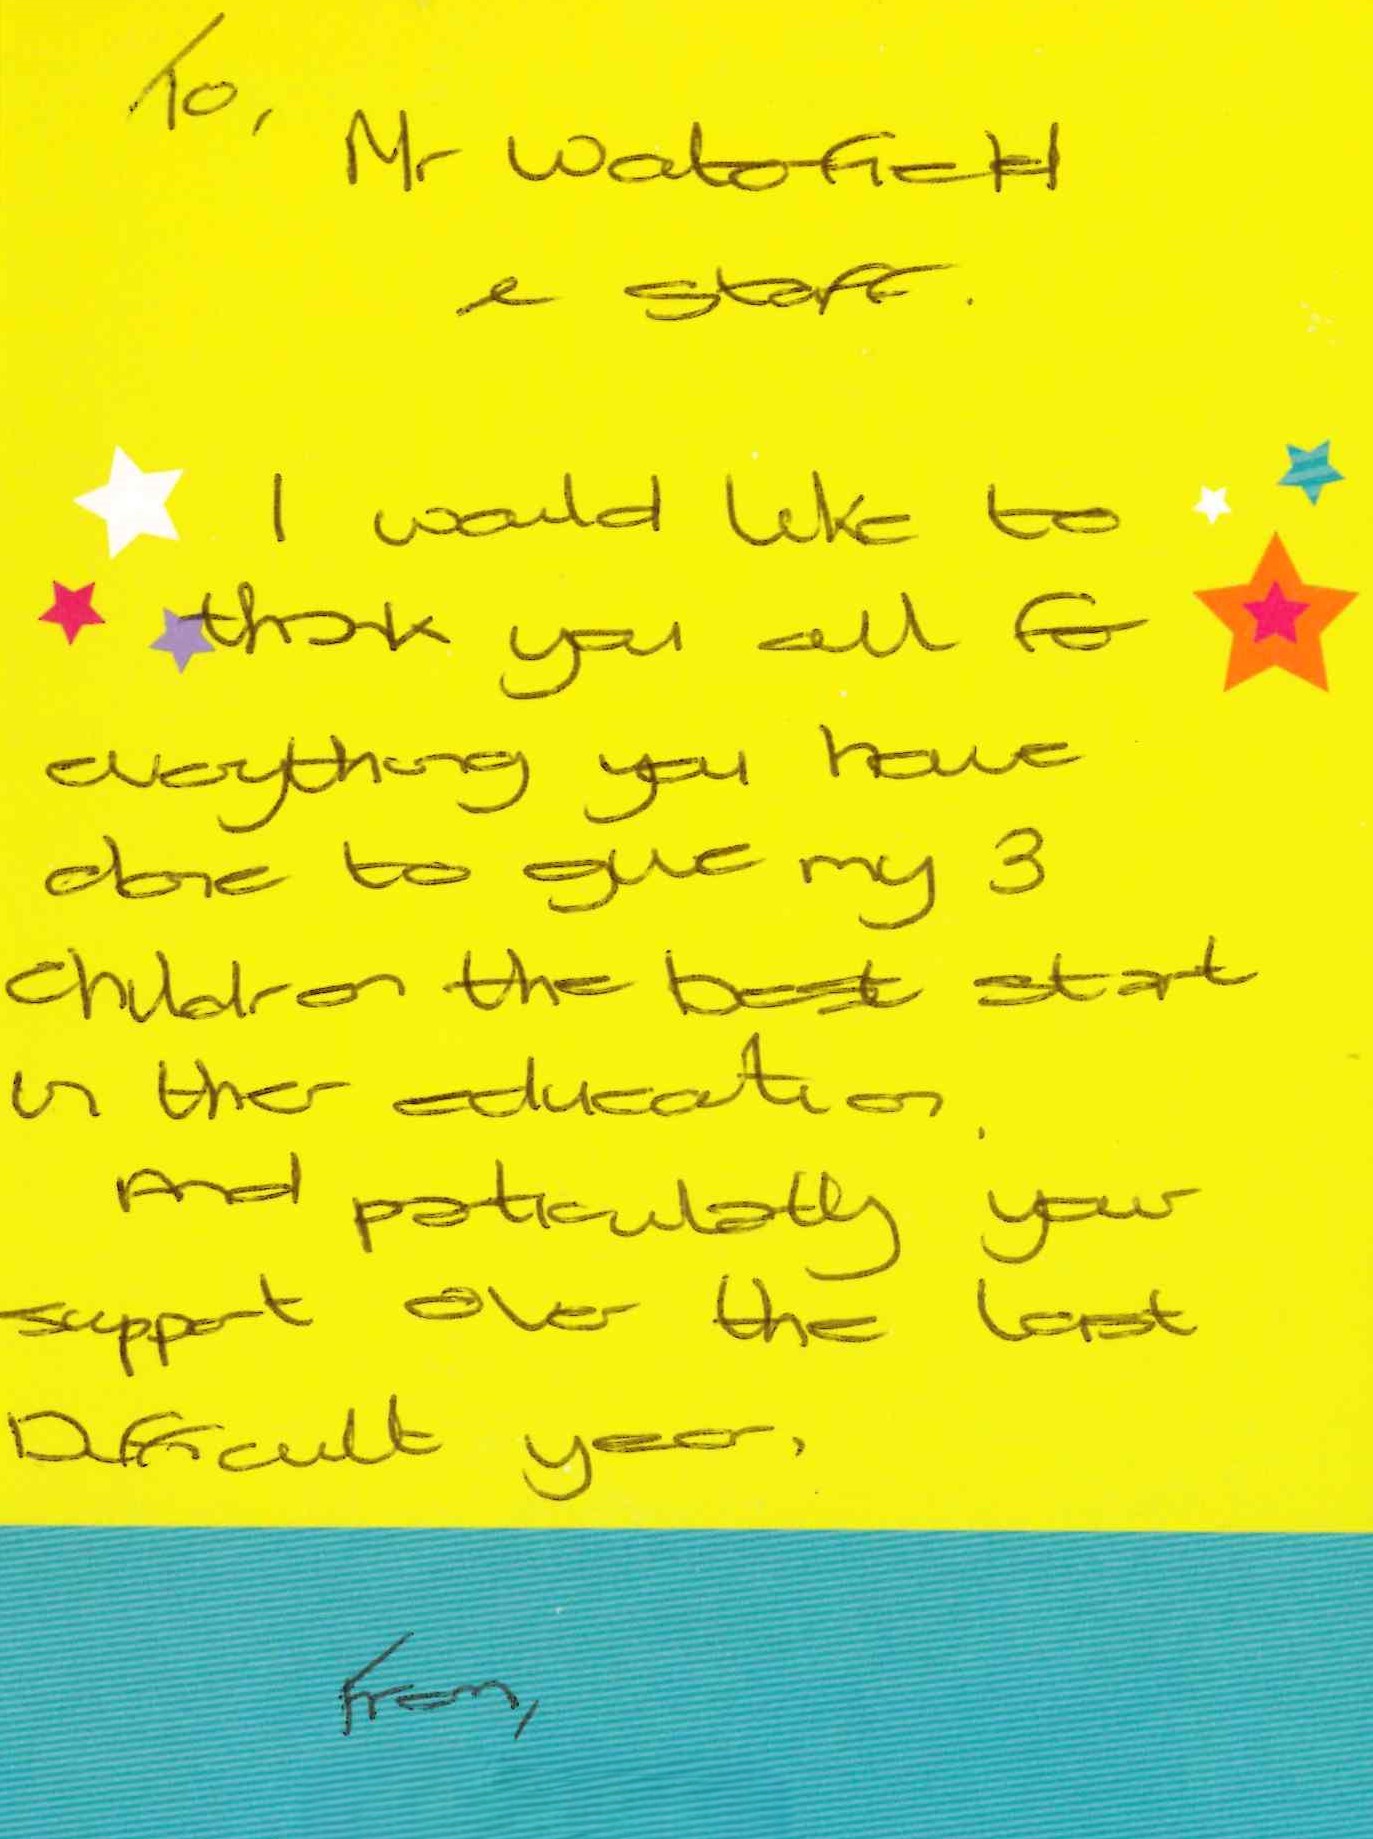 To,
Mr Waterfield
& staff.
I would like to
thank you all for
everything you have
done to give my 3
children the best start
in their education.
And particulatly your
support over the last
Difficult year,
From,